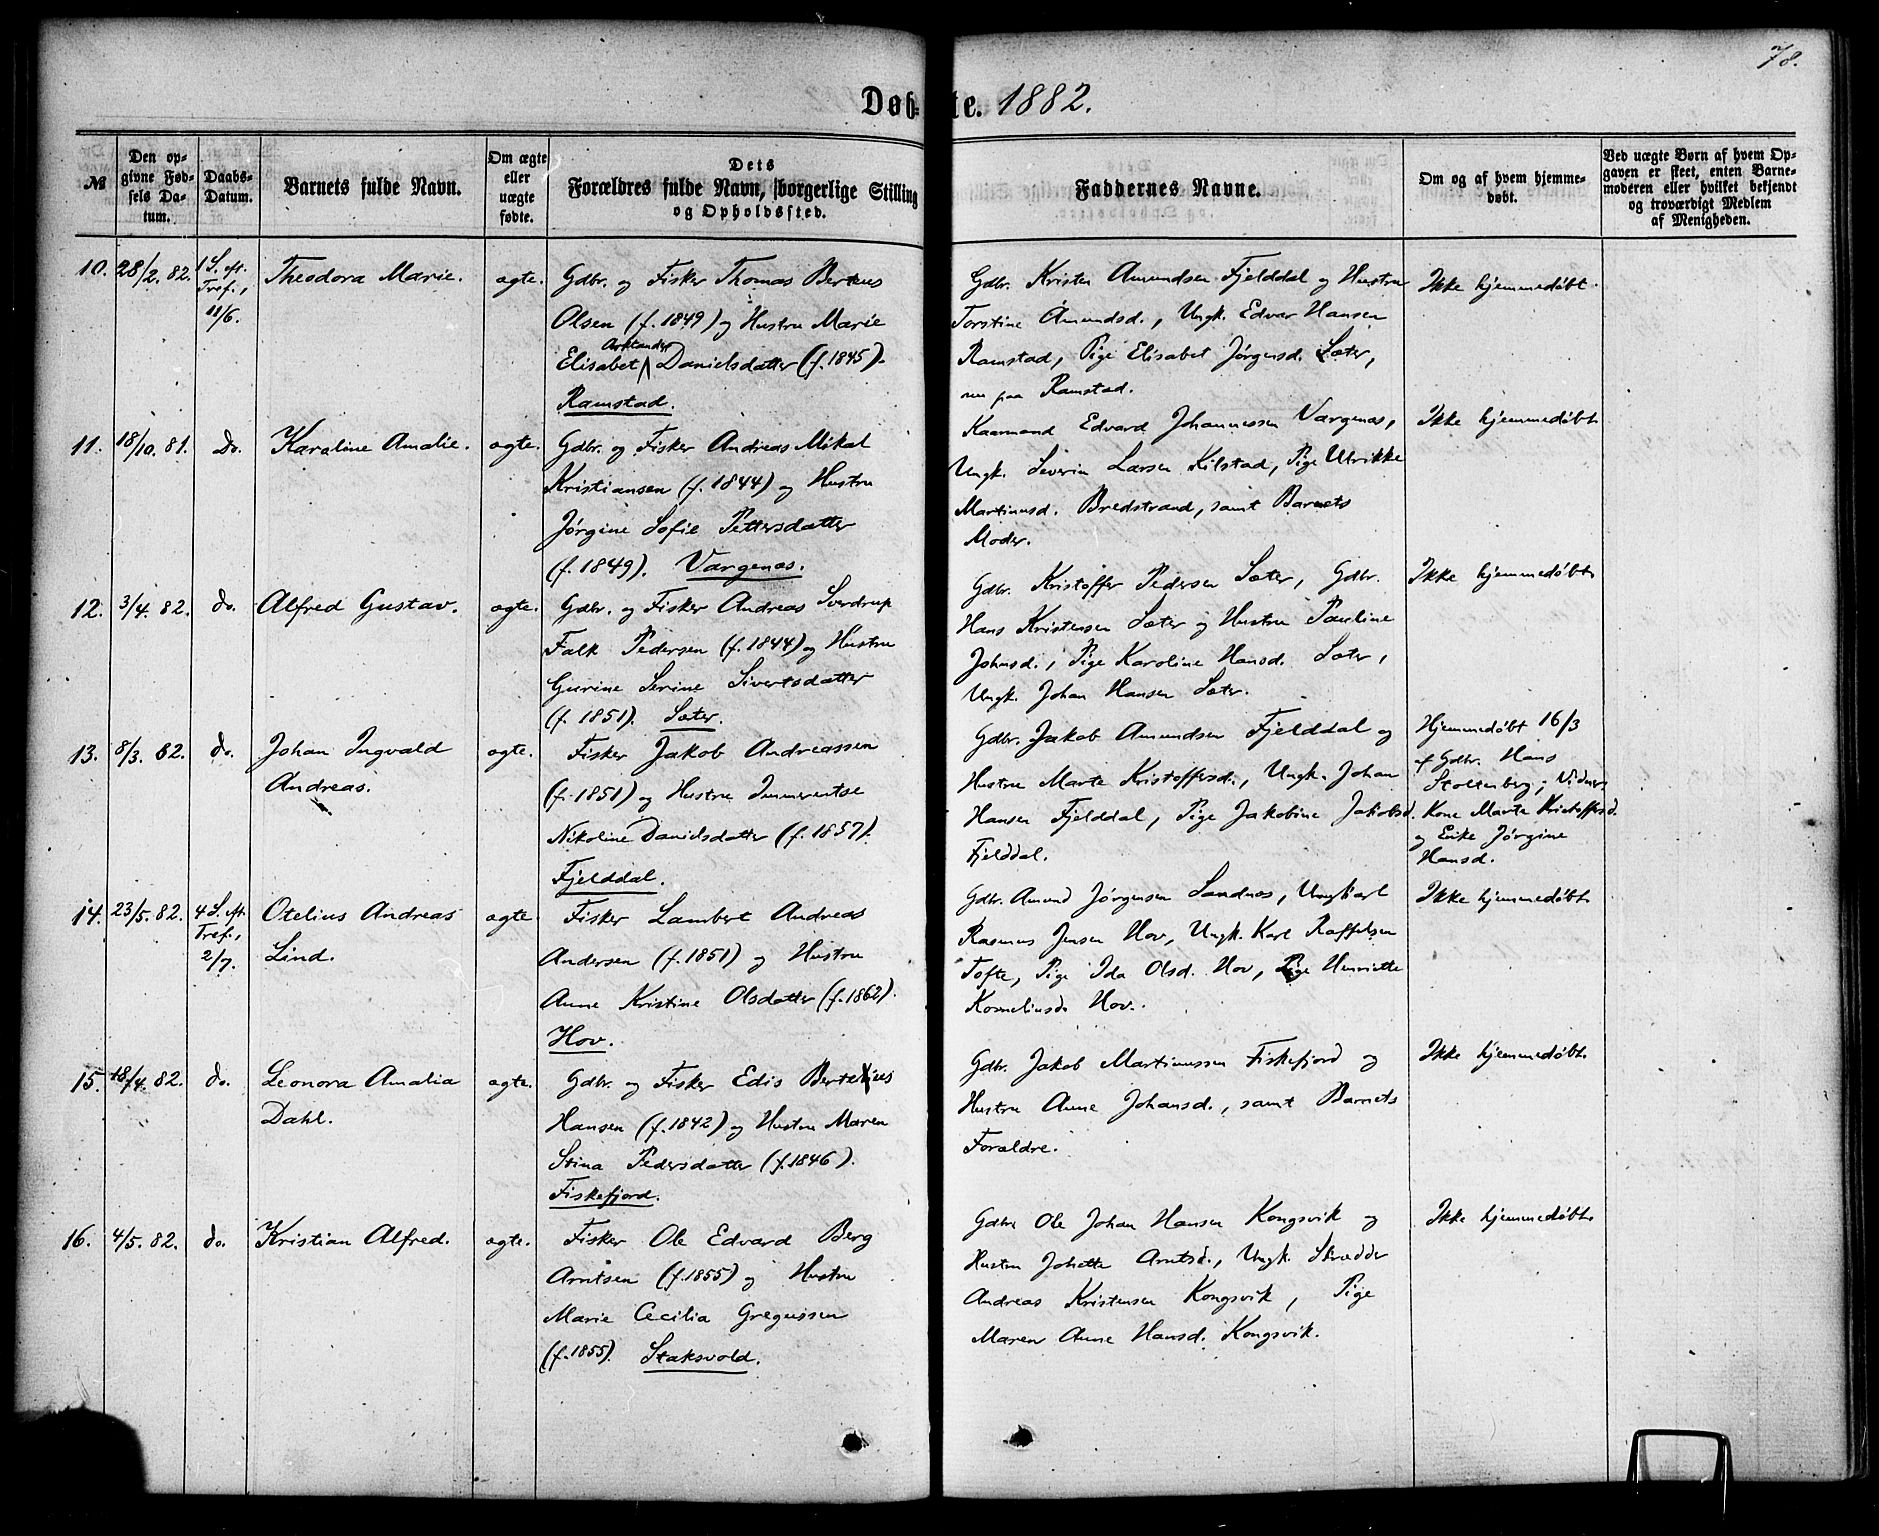 78.
Døbte. 1882.
№
Den opgivne Fødsels Datum.
Daabs-Datum.
Barnets fulde Navn.
Om ægte eller uægte fødte.
Dets Forældres fulde Navn, borgerlige Stilling og Opholdssted.
Faddernes Navne.
Om og af hvem hjemmedøbt.
Ved uægte Børn af hvem Opgaven er skeet, enten Barnemoderen eller hvilket bekjendt og troværdigt Medlem af Menigheden.
10. 28/2. 82. 1 S. eft. Tref., 11/6. Theodora Marie. ægte.
Gdbr. og Fisker Thomas Berteus
Olsen (f. 1849) og Hustru Marie
Elisabet Arktander Danielsdatter (f. 1845).
Ramstad.
Gdbr. Kristen Amundsen Fjelddal og Hustru
Torstine Amundsd., Ungk. Edvar Hansen
Ramstad, Pige Elisabet Jørgensd. Sæter,
nu paa Ramstad.
Ikke hjemmedøbt.
11. 18/10. 81. Do. Karoline Amalie. ægte.
Gdbr. og Fisker Andreas Mikal
Kristiansen (f. 1844) og Hustru
Jørgine Sofie Pettersdatter
(f. 1849). Vargenæs.
Kaarmand Edvard Johannessen Vargenæs,
Ungk. Severin Larsen Kilstad, Pige Ulrikke
Martinusd. Bredstrand, samt Barnets
Moder.
Ikke hjemmedøbt
12. 3/4. 82. do. Alfred Gustav. ægte.
Gdbr. og Fisker Andreas Sverdrup
Falk Pedersen (f. 1844) og Hustru
Gurine Serine Sivertsdatter
(f. 1851). Sæter.
Gdbr. Kristoffer Pedersen Sæter, Gdbr.
Hans Kristensen Sæter og Hustru Pauline
Johnsd., Pige Karoline Hansd. Sæter,
Ungk. Johan Hansen Sæter.
Ikke hjemmedøbt
13. 8/3. 82. do. Johan Ingvald
Andreas. ægte.
Fisker Jakob Andreassen
(f. 1851) og Hustru Immerentse
Nikoline Danielsdatter (f. 1857).
Fjelddal.
Gdbr. Jakob Amundsen Fjelddal og
Hustru Marte Kristoffersd., Ungk. Johan
Hansen Fjelddal, Pige Jakobine Jakobsd.
Fjelddal.
Hjemmedøbt 16/3
af Gdbr. Hans
Stoltenberg; Vidner:
Kone Marte Kristoffersd.
og Enke Jørgine
Hansd.
14. 23/5. 82. 4 S. eft. Tref., 2/7. Otelius Andreas
Lind. ægte
Fisker Lambert Andreas
Andersen (f. 1851) og Hustru
Anne Kristine Olsdatter (f. 1862).
Hov.
Gdbr. Amund Jørgensen Sandnæs, Ungkarl
Rasmus Jensen Hov, Ungk. Karl Raffelsen
Tofte, Pige Ida Olsd. Hov, Pige Henriette
Korneliusd. Hov.
Ikke hjemmedøbt.
15. 18/4. 82. do. Leonora Amalia
Dahl. ægte.
Gdbr. og Fisker Edis
Hansen (f. 1842) og Hustru Maren
Stina Pedersdatter (f. 1846).
Fiskefjord.
Gdbr. Jakob Martinussen Fiskefjord og
Hustru Anne Johansd., samt Barnets
Forældre.
Ikke hjemmedøbt.
16. 4/5. 82. do. Kristian Alfred. ægte.
Fisker Ole Edvard Berg
Arntsen (f. 1855) og Hustru
Marie Cecilia Gregussen
(f. 1855). Staksvold.
Gdbr. Ole Johan Hansen Kongsvik og
Hustru Johette Arntsd., Ungk. Skrædder
Andreas Kristensen Kongsvik, Pige
Maren Anne Hansd. Kongsvik.
Ikke hjemmedøbt.